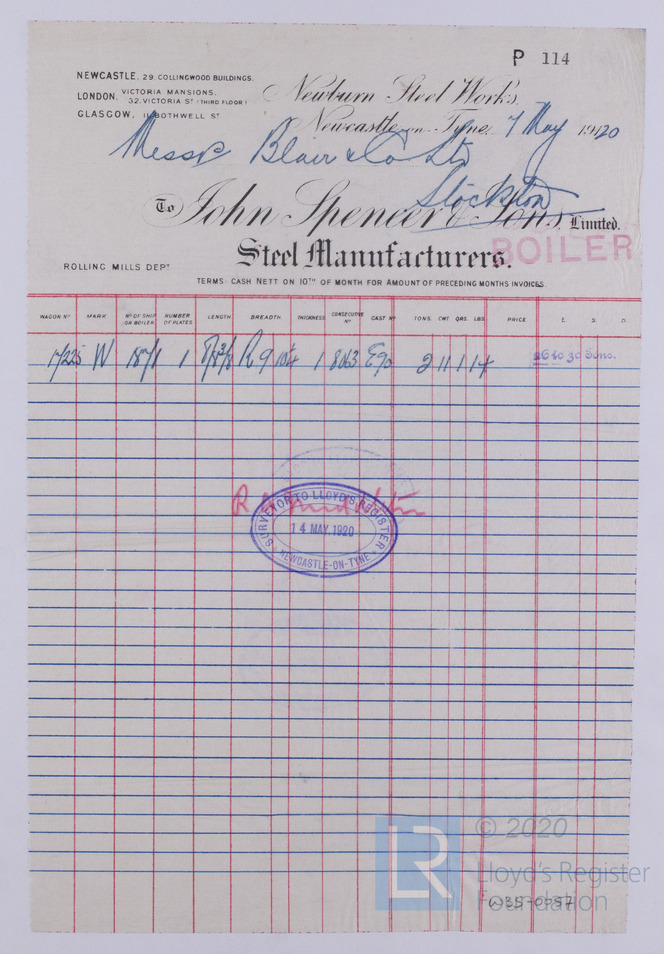 P 114
NEWCASTLE, 29. COLLINGWOOD BUILDINGS.
LONDON, VICTORIA MANSIONS, 32. VICTORIA ST (THIRD FLOOR)
GLASGOW, BOTHWELL ST
Newburn Steel Works,
Newcastle-on-Tyne, 7 May 1920
Messrs Blair & Co Ltd
Stockton
To John Spencer & Sons, Limited.
Steel Manufacturers.
BOILER
ROLLING MILLS DEPT
TERMS: CASH NETT ON 10TH OF MONTH FOR AMOUNT OF PRECEDING MONTHS INVOICES.
WAGON NO MARK NO OF SHIP OR BOILER NUMBER OF PLATES LENGTH BREADTH THICKNESS CONSECUTIVE NO CAST NO TONS. CWT QRS. LBS PRICE £. S. D.
W 187/1 1 1 2 11 1 14 26 to 30 Tons.
SURVEYOR TO LLOYD'S REGISTER
14 MAY 1920
NEWCASTLE-ON-TYNE
LR
© 2020
Lloyd's Register
Foundation
W35-0057